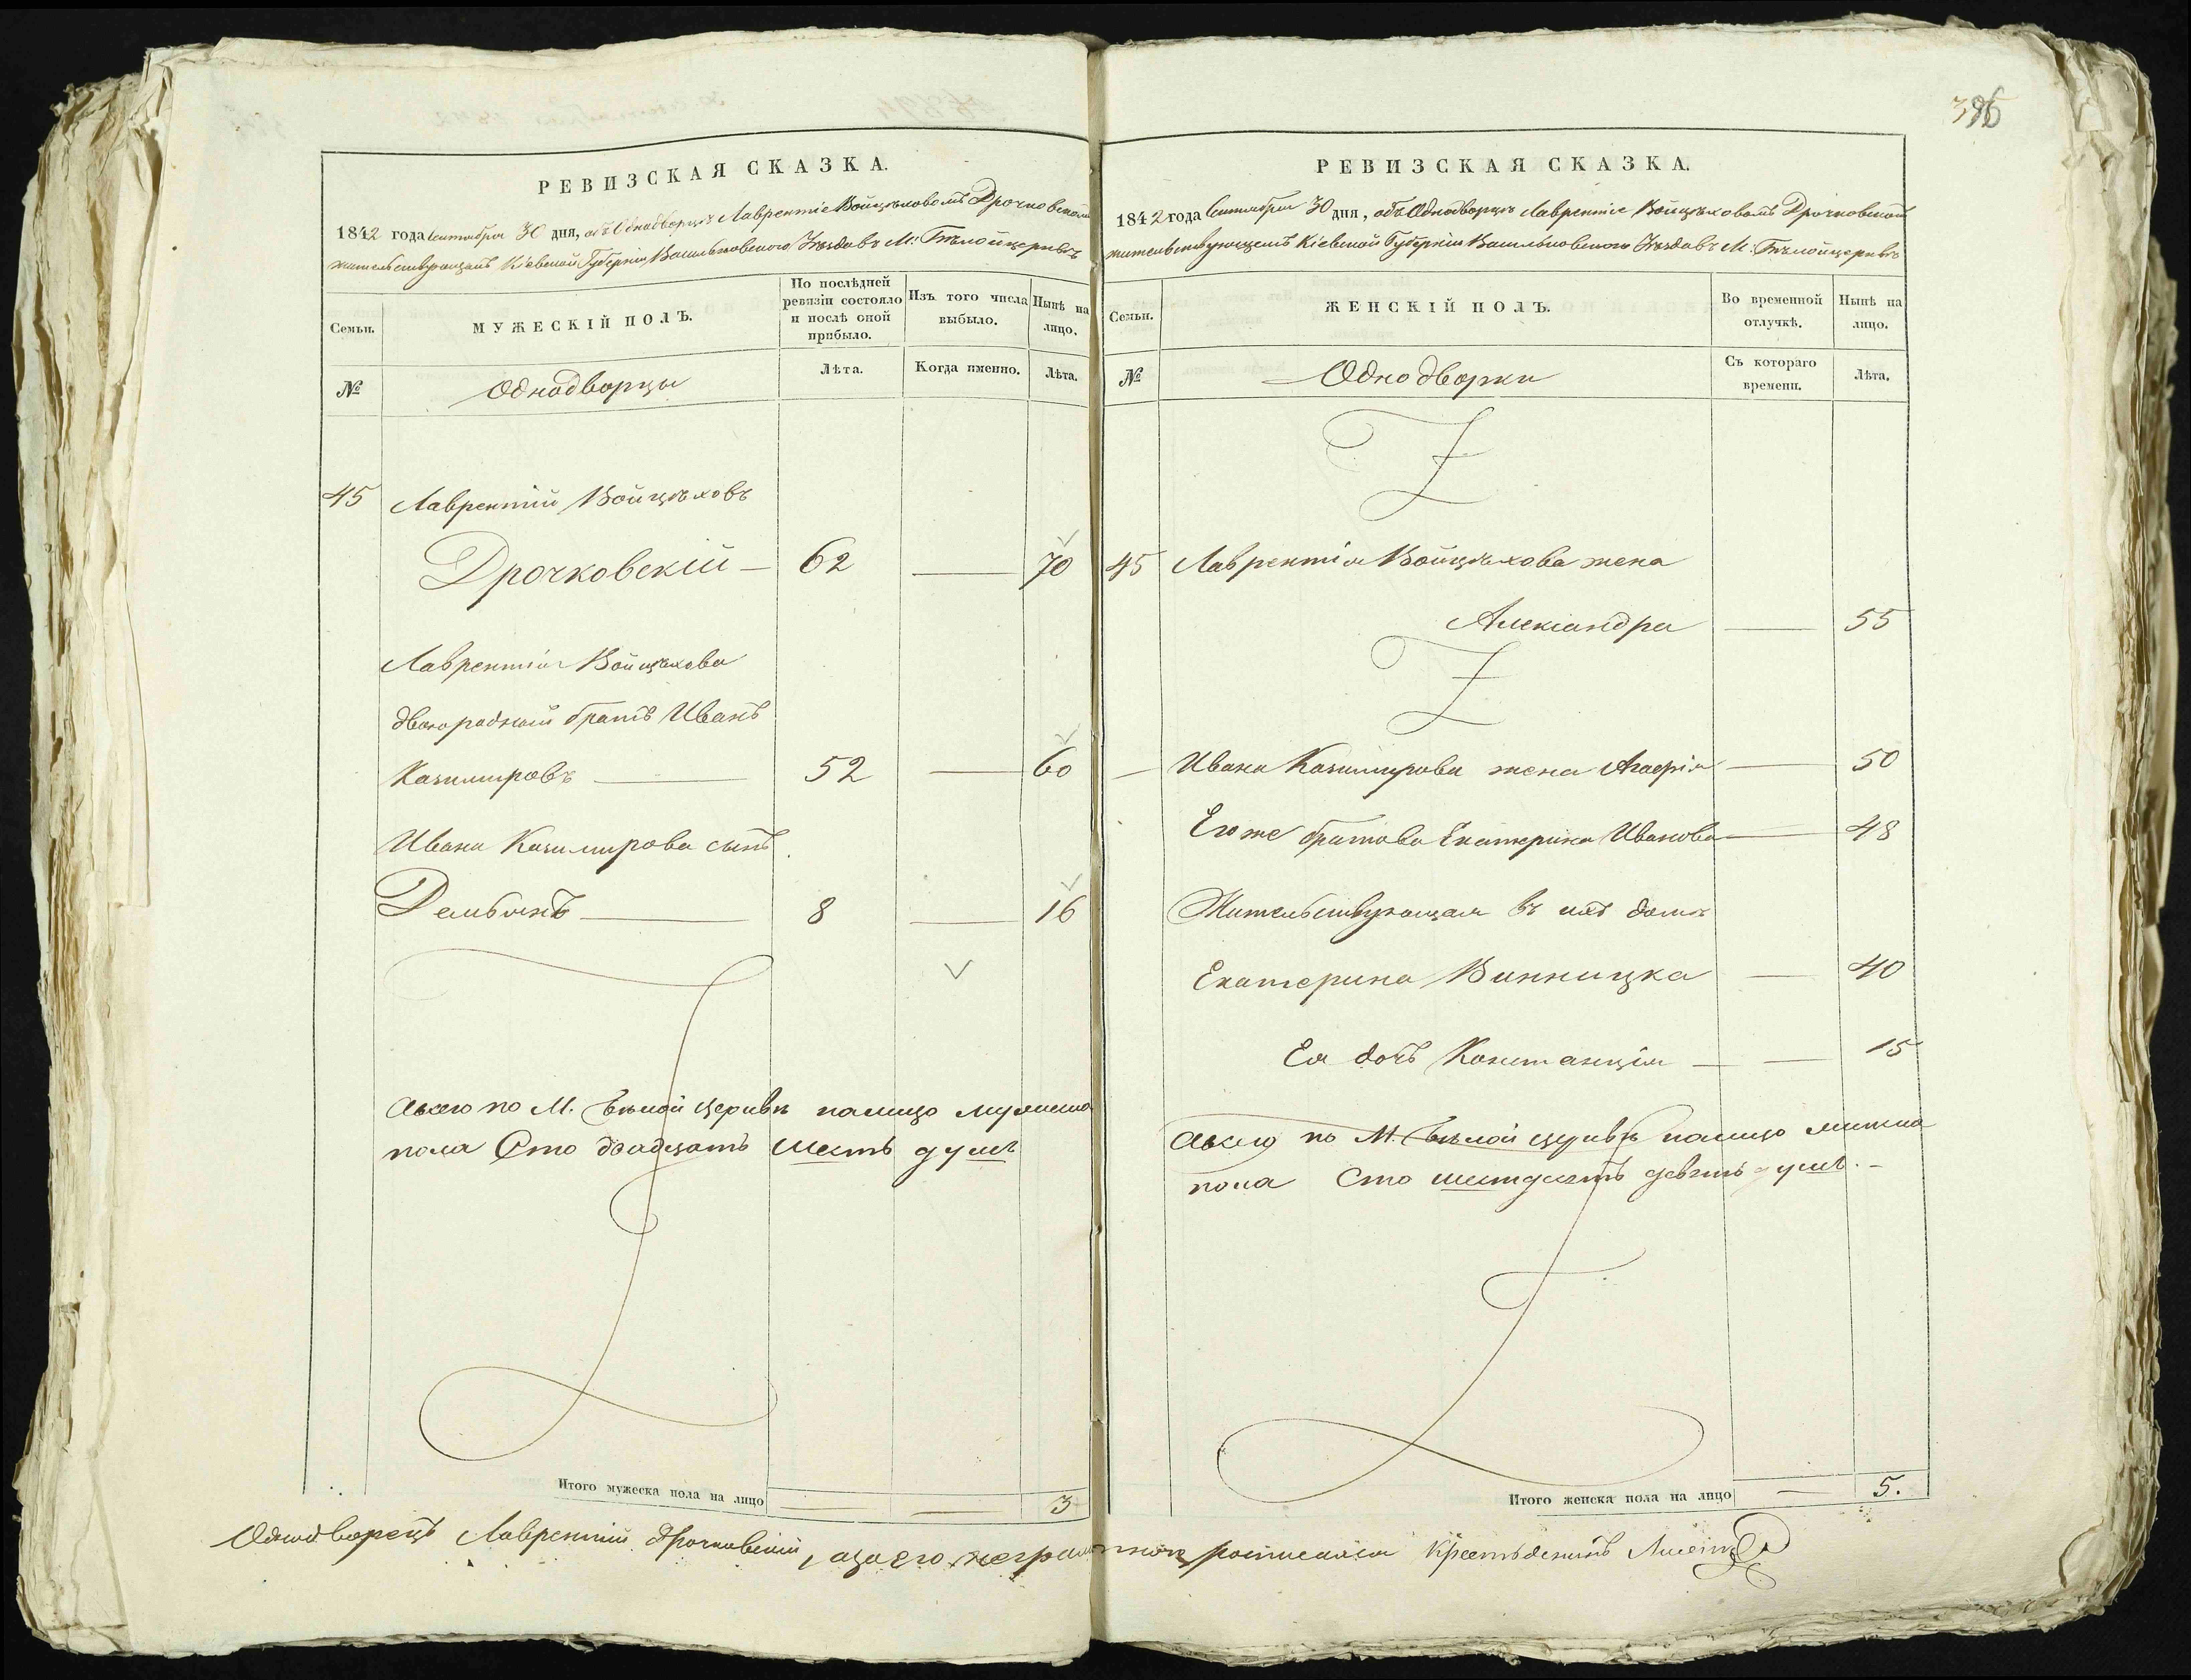 386
РЕВИЗСКАЯ СКАЗКА.
1842 года Сентября 30 дня, объ Однодворцѣ Лаврентіе Войцѣховомъ Дрочковскомъ
жительствующемъ Кіевской Губерніи Васильковскаго Уѣзда въ М: Бѣлойцерквѣ
Семьи.
МУЖЕСКІЙ ПОЛЪ.
По послѣдней
ревизіи состояло
и послѣ оной
прибыло.
Изъ того числа
выбыло.
Нынѣ на
лицо.
№
Однодворцы
Лѣта.
Когда именно.
Лѣта.
45 Лаврентій Войцѣховъ
Дрочковскій — 62 — 70
Лаврентія Войцѣхова
двоюродный братъ Иванъ
Казимировъ — 52 — 60
Ивана Казимирова сынъ
Демьянъ — 8 — 16
Авсего по М. Бѣлой Церквѣ налицо мужеска
пола Сто двадцать шесть душъ
Итого мужеска пола на лицо — — 3
РЕВИЗСКАЯ СКАЗКА.
1842 года Сентября 30 дня, объ Однодворцѣ Лаврентіе Войцѣховомъ Дрочковскомъ
жительствующемъ Кіевской Губерніи Васильковскаго Уѣзда въ М: Бѣлойцерквѣ
Семьи.
ЖЕНСКІЙ ПОЛЪ.
Во временной
отлучкѣ.
Нынѣ на
лицо.
№
Однодворки
Съ котораго
времени.
Лѣта.
45 Лаврентія Войцѣхова жена
Александра — 55
— Ивана Казимирова жена Агафія — 50
Его же братова Екатерина Иванова — 48
Жительствующая въ ихъ домѣ
Екатерина Винницка — 40
Ея дочь Констанція — — 15
Авсего по М. Бѣлой Церквѣ налицо женска
пола Сто шестдесятъ девять душъ. —
Итого женска пола на лицо — 5.
Однодворецъ Лаврентій Дрочковскій, а за его неграмотного росписался